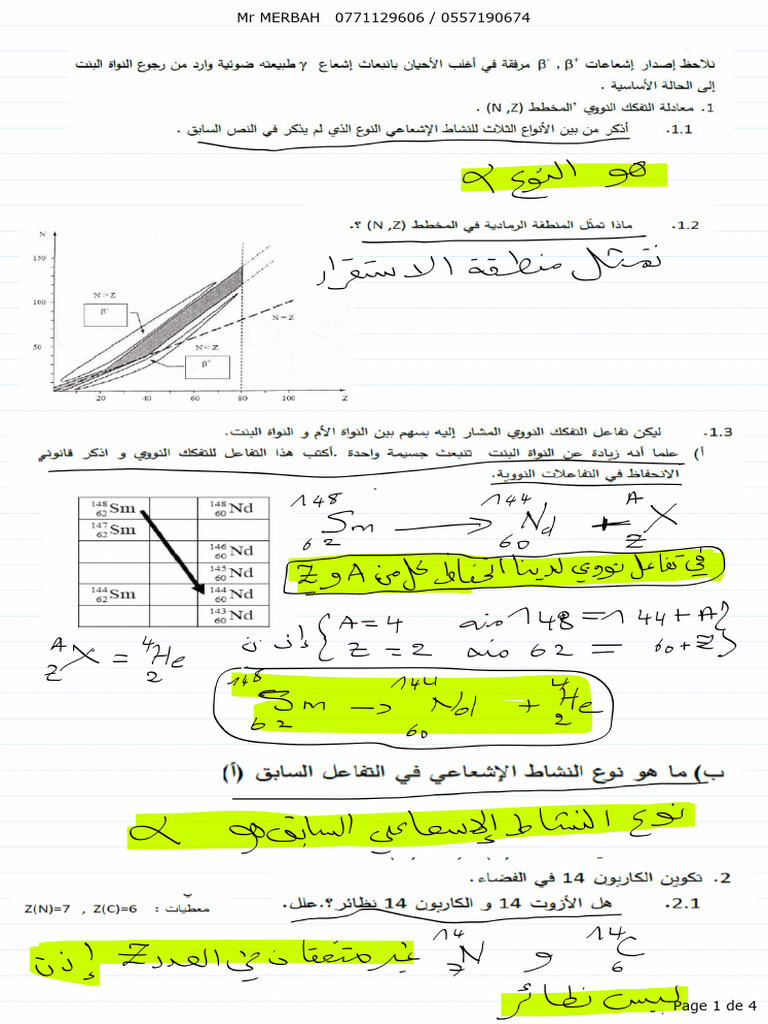 Mr MERBAH 0771129606 / 0557190674
نلاحظ إصدار إشعاعات β⁺ , β⁻ مرفقة في أغلب الأحيان بانبعاث إشعاع γ طبيعته ضوئية وارد من رجوع النواة البنت
إلى الحالة الأساسية .
1. معادلة التفكك النووي "المخطط (N ,Z) .
1.1. أذكر من بين الأنواع الثلاث للنشاط الإشعاعي النوع الذي لم يذكر في النص السابق .
هو النوع α
1.2. ماذا تمثّل المنطقة الرمادية في المخطط (N ,Z) ؟.
تمثل منطقة الاستقرار
N
150
100
50
N > Z
β⁻
N = Z
N < Z
β⁺
20 40 60 80 100 Z
1.3. ليكن تفاعل التفكك النووي المشار إليه بسهم بين النواة الأم و النواة البنت.
أ) علما أنه زيادة عن النواة البنت تنبعث جسيمة واحدة .أكتب هذا التفاعل للتفكك النووي و اذكر قانوني
الانحفاظ في التفاعلات النووية.
¹⁴⁸₆₂Sm ¹⁴⁸₆₀Nd
¹⁴⁷₆₂Sm
¹⁴⁶₆₀Nd
¹⁴⁵₆₀Nd
¹⁴⁴₆₂Sm ¹⁴⁴₆₀Nd
¹⁴³₆₀Nd
¹⁴⁸₆₂Sm → ¹⁴⁴₆₀Nd + ᴬ_Z X
في تفاعل نووي لدينا انحفاظ كل من A و Z
148 = 144 + A منه A = 4
62 = 60 + Z منه Z = 2
إذن
ᴬ_Z X = ⁴₂He
¹⁴⁸₆₂Sm → ¹⁴⁴₆₀Nd + ⁴₂He
ب) ما هو نوع النشاط الإشعاعي في التفاعل السابق (أ)
نوع النشاط الإشعاعي السابق هو α
2. تكوين الكاربون 14 في الفضاء.
2.1. هل الأزوت 14 و الكاربون 14 نظائر؟.علل. معطيات : Z(N)=7 , Z(C)=6
¹⁴₆C و ¹⁴₇N غير متفقان في العدد Z إذن
ليس نظائر
Page 1 de 4